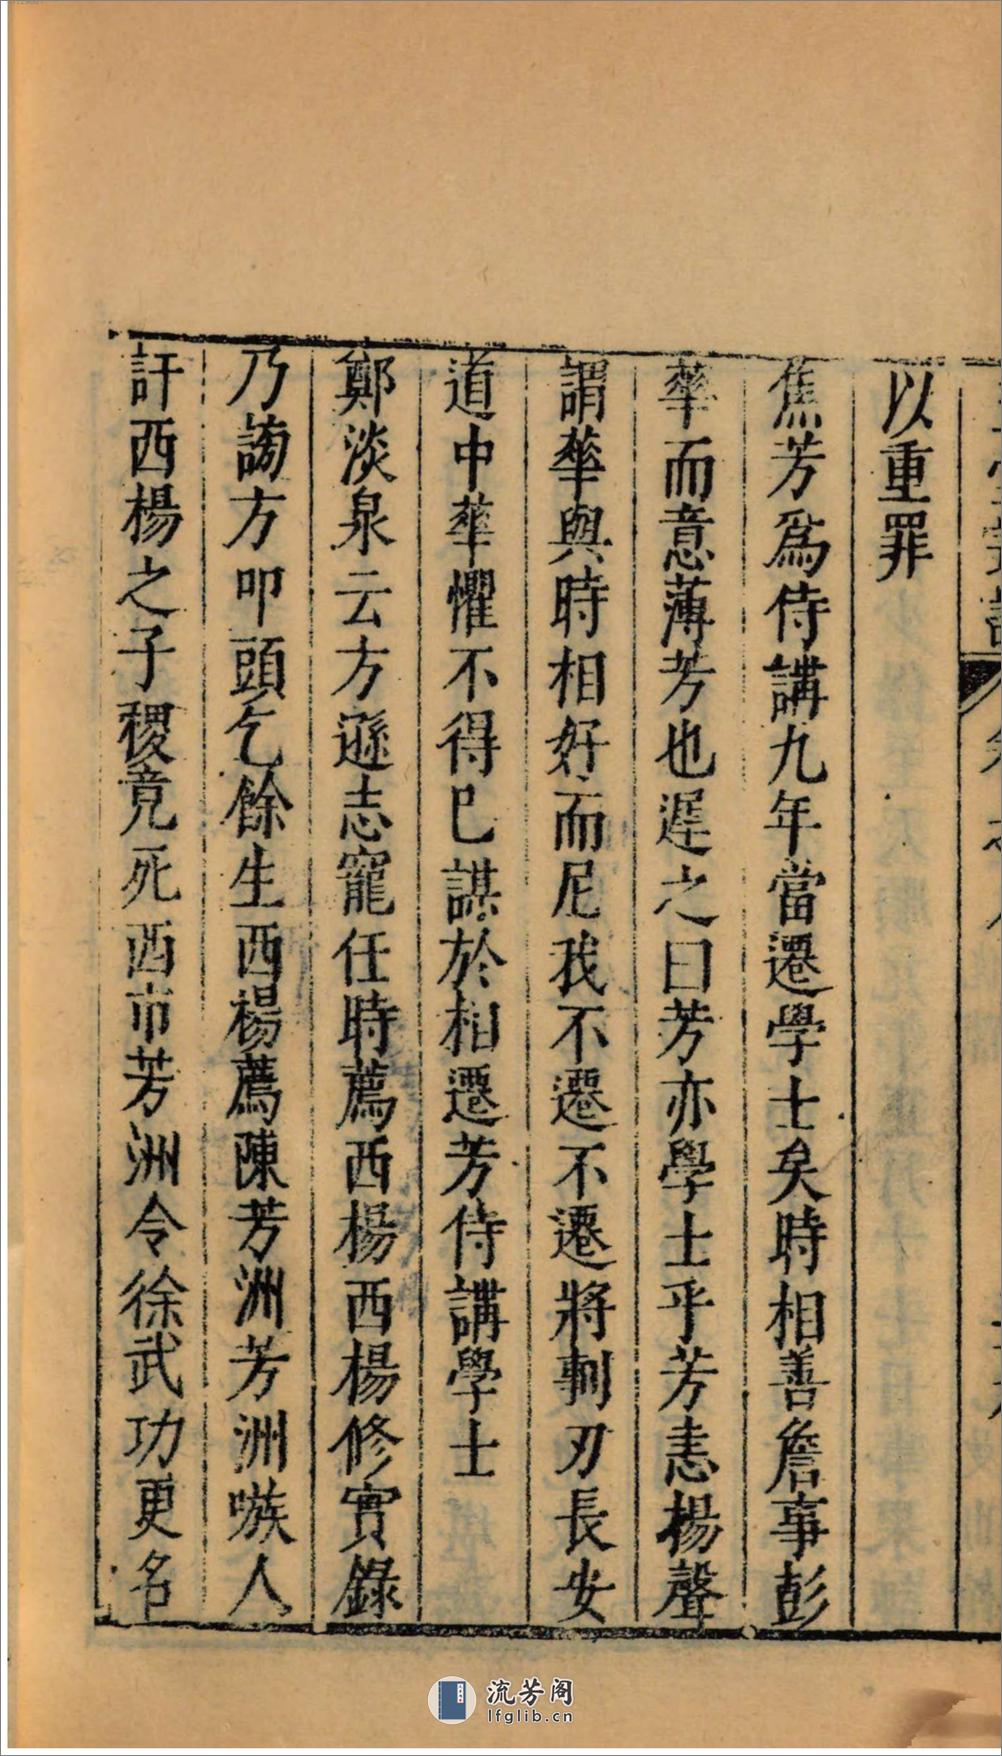 以重罪
焦芳爲侍講九年當遷學士矣時相善詹事彭
華而意薄芳也遲之曰芳亦學士乎芳恚楊聲
謂華與時相好而尼我不遷不遷將剚刃長安
道中華懼不得已謀於相遷芳侍講學士
鄭淡泉云方遜志寵任時薦西楊西楊修實錄
乃謗方叩頭乞餘生西楊薦陳芳洲芳洲嗾人
訐西楊之子稷竟死西市芳洲令徐武功更名
流芳阁
lfglib.cn